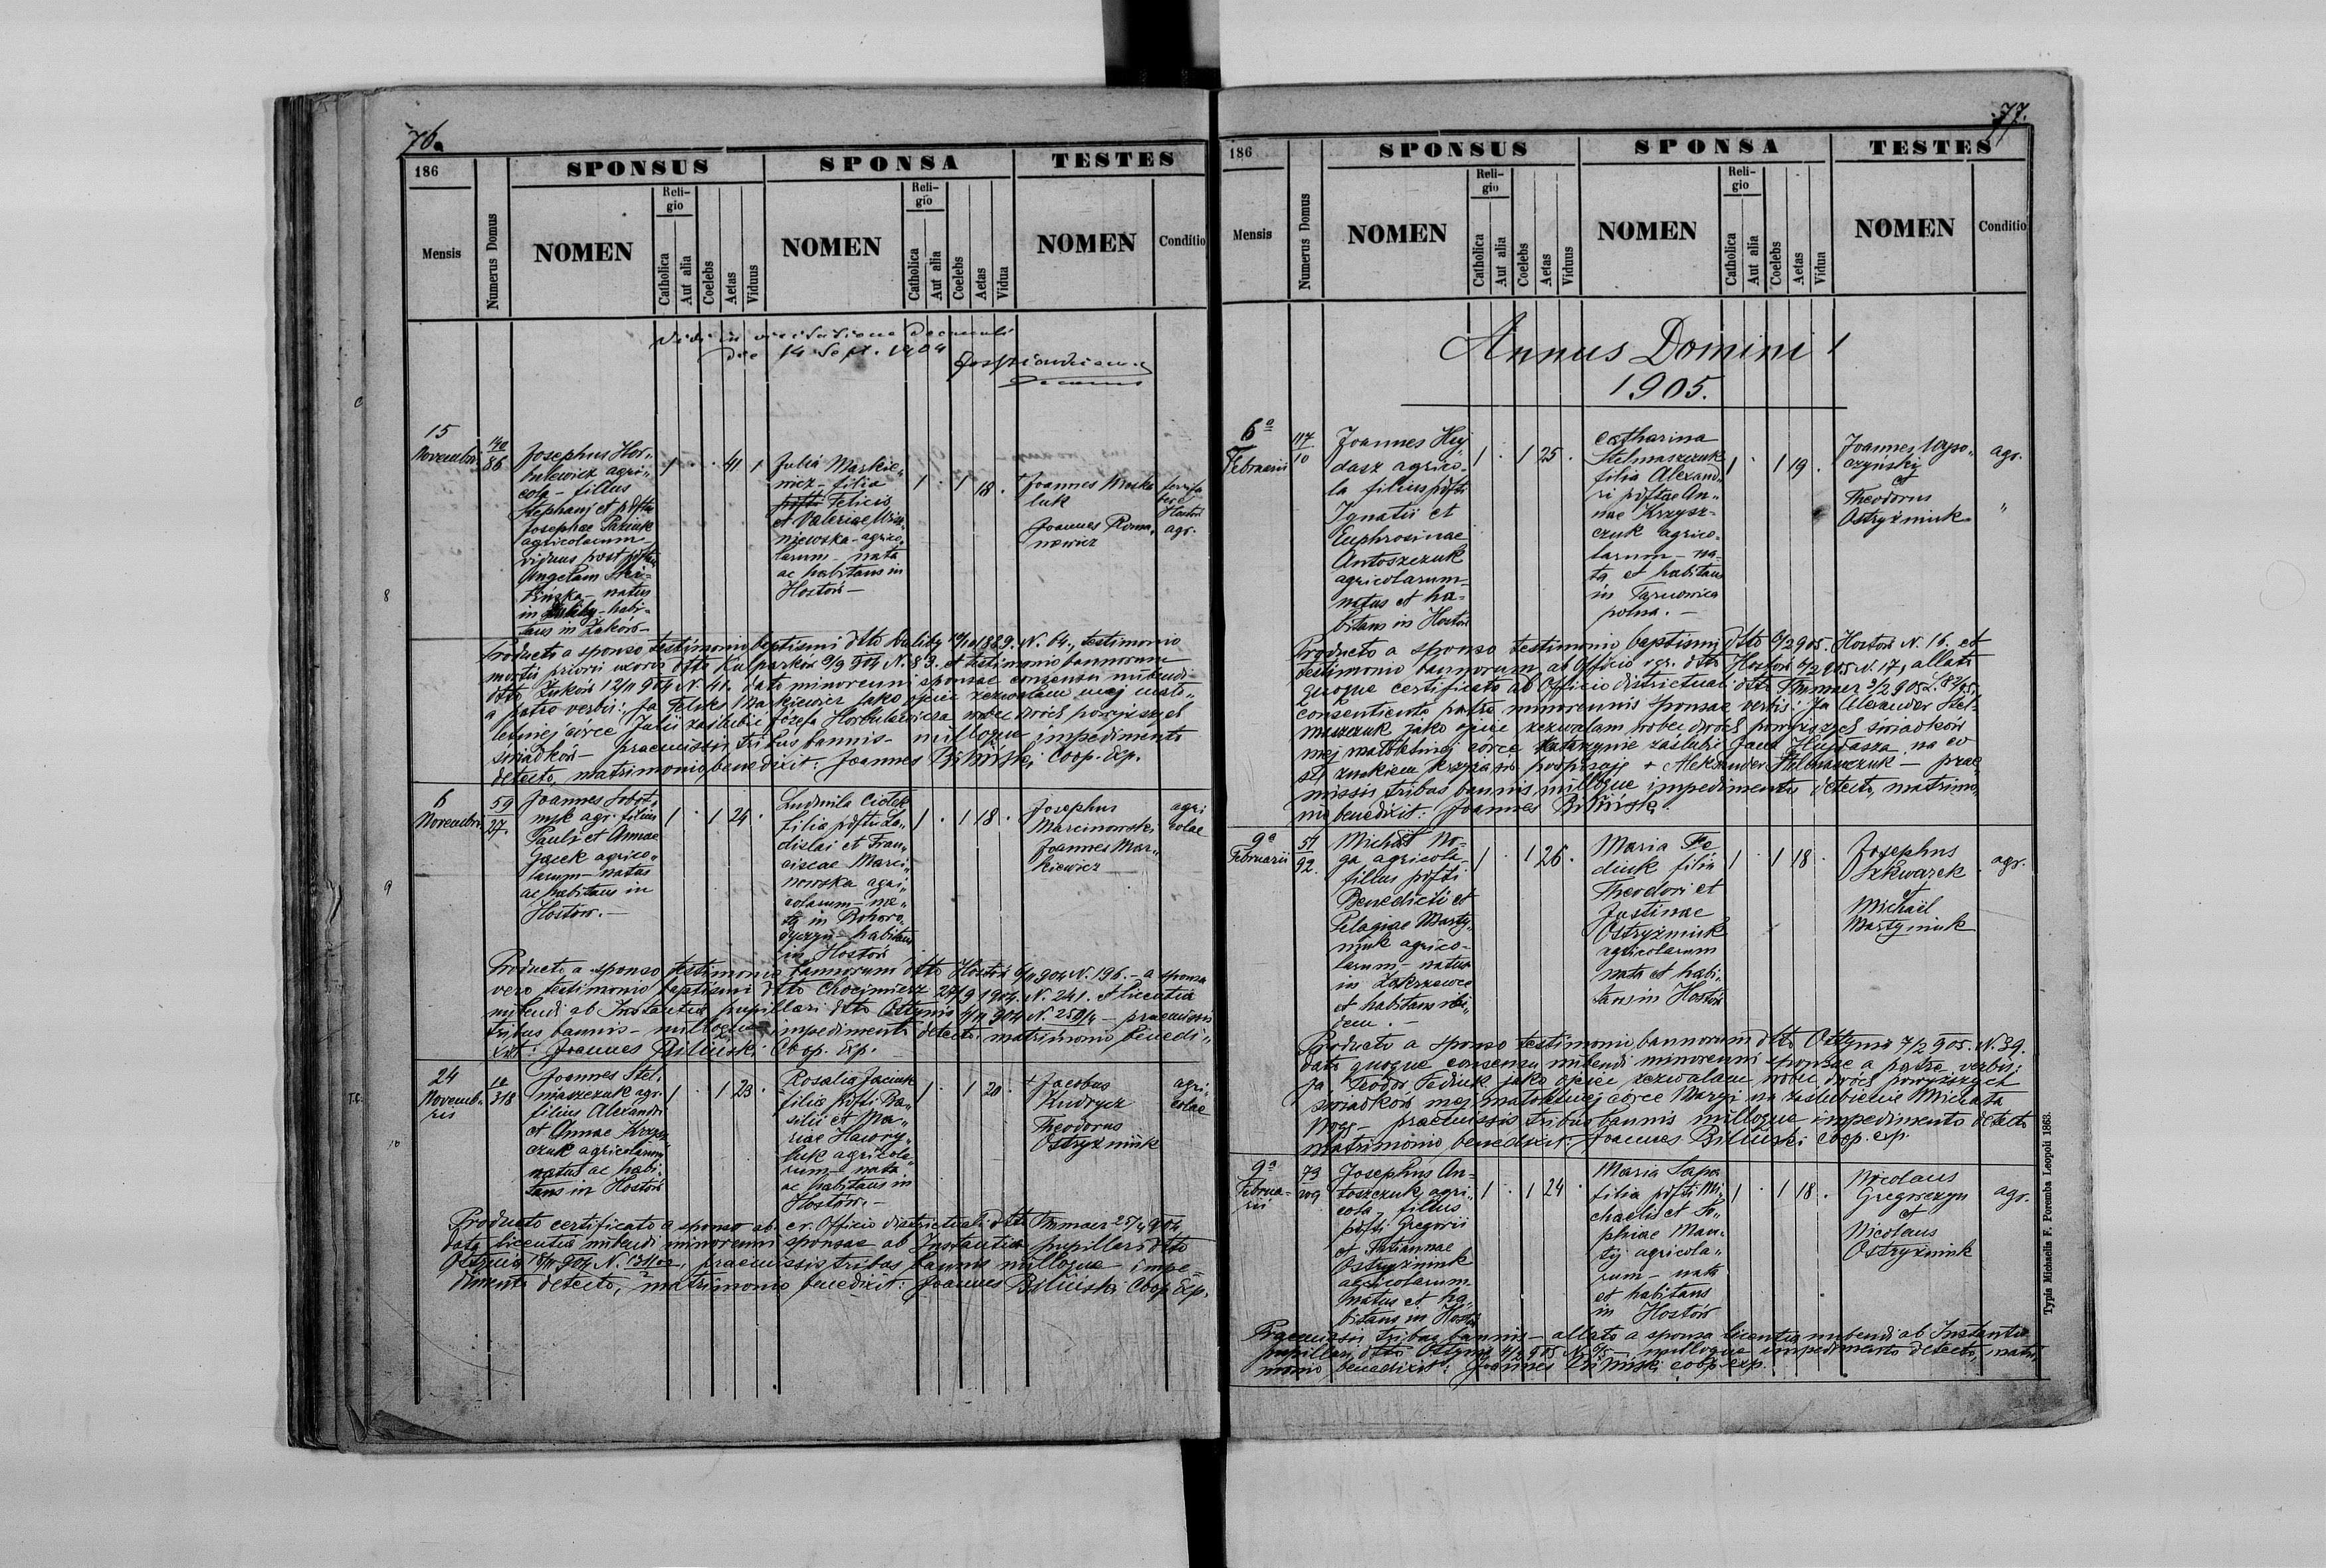 76.
186
SPONSUS
SPONSA
TESTES
Mensis
Numerus Domus
NOMEN
Religio
Catholica
Aut alia
Coelebs
Aetas
Viduus
NOMEN
Religio
Catholica
Aut alia
Coelebs
Aetas
Vidua
NOMEN
Conditio
Vidi in visitatione Decanali
die 14 Sept. 1904
15
Novembris
140
86
Josephus Hor„
bulewicz agri„
cola – filius
Stephani et pdftae
Josephae Paziuk
agricolarum –
viduus post pdftam
Angelam
– natus
in – habi„
tans in Żuków –
1 · · 41 1
Julia Markie„
wicz – filia
Felicis
et Valeriae Wisz„
niewska – agrico„
larum – nata
ac habitans in
Hostów –
1 · 1 18 ·
+ Joannes
luk
Joannes Roma„
nowicz
Hostów
agr.
Producto a sponso testimonio baptismi dtto N. 64., testimonio
mortis prioris uxoris dtto Kulparków 9/9 904 N. 83. et testimonio bannorum
dtto Żuków 12/11 904 N. 41. dato minorenni sponsae consensu nubendi
a patre verbis: „Ja Feliks Markiewicz jako ojciec zezwalam mej mało„
letniej córce Julii zaślubić Józefa Horbulewicza wobec dwóch powyższych
świadków – praemissis tribus bannis – nulloque impedimento
detecto, matrimonio benedixit: Joannes Biliński Coop. Exp.
6
Novembris
59
27.
Joannes Sobot„
nyk agr. filius
Pauli et Annae
Gacek agrico„
larum – natus
ac habitans in
Hostów. –
1 · 1 24 ·
Ludmila Ciołek
filia pdfti La„
dislai et Fran„
ciscae Marci„
nowska agri„
colarum – na„
ta in Bohoro„
dyczyn – habitans
in Hostów
1 · 1 18 ·
Josephus
Marcinowski
Joannes Mar„
kiewicz
agri„
colae
Producto a sponso testimonio bannorum dtto Hostów 6/11 904 N. 196. – a sponsa
vero testimonio baptismi dtto Chocimierz 24/9 1904. N. 241. et licentia
nubendi ab Instantia pupillari dtto Ottynia 4/11 904 N. – praemissis
tribus bannis – nulloque impedimento detecto matrimonio benedi„
xit: Joannes Biliński Coop. Exp.
24
Novemb„
ris
10
318
Joannes Stel„
maszczuk agr.
filius Alexandri
et Annae Krzysz„
czuk agricolarum
natus ac habi„
tans in Hostów
1 · 1 23 ·
Rosalia Jaciuk
filia pdfti Ba„
silii et Ma„
riae Hawry„
luk agricola„
rum – nata
ac habitans in
Hostów. –
1 · 1 20 ·
+ Jacobus
Kudrycz
Theodorus
Ostryżniuk
agri„
colae
Producto certificato a sponso ab cr. Officio districtuali dtto Tłumacz 25/4 904
data licentia nubendi minorenni sponsae ab Instantia pupillari dtto
Ottynia 18/11 904 N. praemissis tribus bannis nulloque impe„
dimento detecto, matrimonio benedixit: Joannes Biliński Coop Exp.
8
9
10
77.
186
SPONSUS
SPONSA
TESTES
Mensis
Numerus Domus
NOMEN
Religio
Catholica
Aut alia
Coelebs
Aetas
Viduus
NOMEN
Religio
Catholica
Aut alia
Coelebs
Aetas
Vidua
NOMEN
Conditio
Annus Domini
1905.
6a
Februarii
117
10
Joannes Huj„
dasz agrico„
la filius pdfti
Ignatii et
Euphrosinae
Antoszczuk
agricolarum –
natus et ha„
bitans in Hostów
1 · 1 25 ·
Catharina
Stelmaszczuk
filia Alexand„
ri pdftae An„
nae Krzysz„
czuk agrico„
larum – na„
ta et habitans
in Tarnowica
polna. –
1 · 1 19 ·
Joannes Wyso„
czyński
et
Theodorus
Ostryżniuk
agr.
„
Producto a sponso testimonio baptismi dtto 6/2 905. Hostów N. 16. et
testimonio bannorum ab Officio rgr. dtto Hostów 6/2 905 N. 17, allato
quoque certificato ab Officio districtuali dtto Tłumacz 3/2 905
consentiente patre minorennis sponsae verbis: „Ja Alexander Stel„
maszczuk jako ojciec zezwalam wobec dwóch powyższych świadków
mej małoletniej córce Katarzynie zaślubić Jana Hujdasza na co
się znakiem krzyża podpisuję + Aleksander Stelmaszczuk – prae„
missis tribus bannis nulloque impedimento detecto, matrimo„
nio benedixit: Joannes Biliński
9a
Februarii
51
92.
Michaël No„
ga agricola
filius pdfti
Benedicti et
Pelagiae Marty„
niuk agrico„
larum – natus
in Zakrzewce
et habitans ibi„
dem. –
1 · 1 26 ·
Maria Fe„
diuk filia
Theodori et
Justinae
Ostryżniuk
agricolarum
nata et habi„
tans in Hostów
1 · 1 18 ·
Josephus
Szkwarek
et
Michaël
Martyniuk
agr.
Producto a sponso testimonio bannorum dtto Ottynia 7/2 905. N. 39.
dato quoque consensu nubendi minorenni sponsae a patre verbis:
„Ja Teodor Fediuk jako ojciec zezwalam wobec dwóch powyższych
świadków mej małoletniej córce Maryi na zaślubienie Michała
Nogę – praemissis tribus bannis nulloque impedimento detecto
matrimonio benedixit. Joannes Biliński Coop. exp.
9a
Februa„
rii
73
209
Josephus An„
toszczuk agri„
cola, filius
pdfti Gregorii
et Tatiannae
Ostryżniuk
agricolarum
natus et ha„
bitans in Hostów
1 · 1 24 ·
Maria Sapa
filia pdfti Mi„
chaelis et So„
phiae Man„
tij agricola„
rum – nata
et habitans
in Hostów
1 · 1 18 ·
Nicolaus
Gregorczyn
et
Nicolaus
Ostryżniuk
agr.
Praemissis tribus bannis – allata a sponsa licentia nubendi ab Instantia
pupillari dtto Ottynia 905 – nulloque impedimento detecto, matri„
monio benedixit: Joannes Biliński coop. exp.
Typis Michaelis F. Poremba Leopoli 1863.